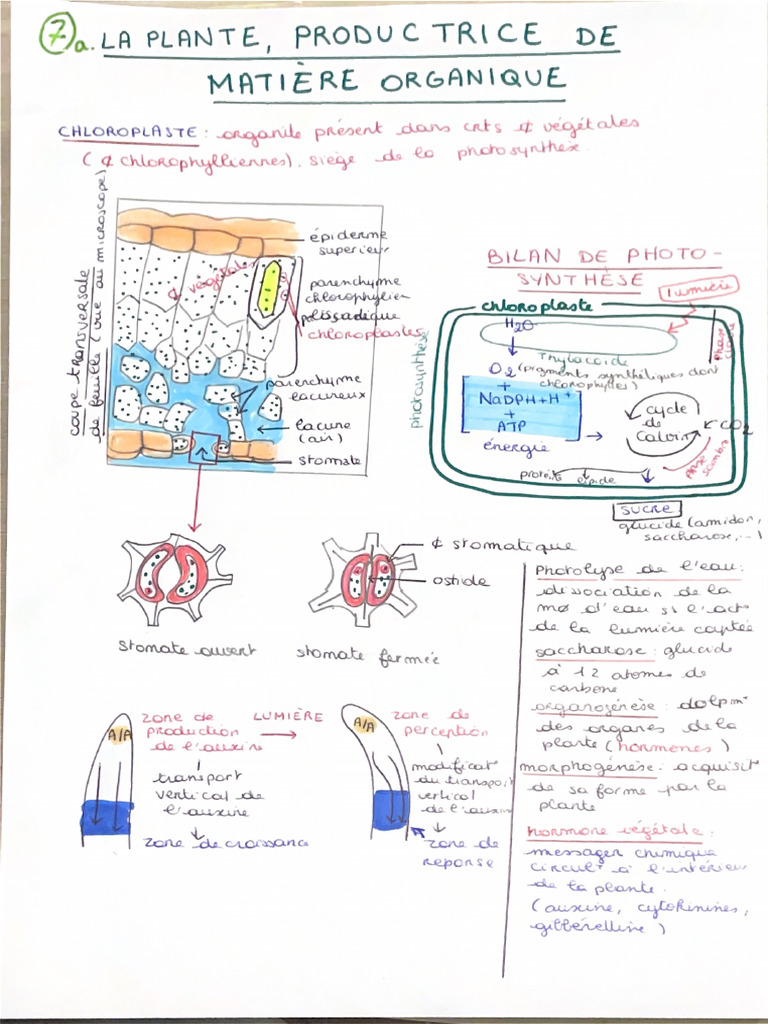 7a. LA PLANTE, PRODUCTRICE DE
MATIÈRE ORGANIQUE
CHLOROPLASTE : organite présent dans crts ¢ végétales
(¢ chlorophylliennes), siège de la photosynthèse.
coupe transversale
de feuille (vue au microscope)
épiderme
supérieur
¢ végétales
parenchyme
chlorophylien
palissadique
chloroplastes
parenchyme
lacuneux
lacune
(air)
stomate
BILAN DE PHOTO-
SYNTHÈSE
lumière
chloroplaste
photosynthèse
H2O
Thylacoïde
phase claire
O2 (pigments synthétiques dont
chlorophylles)
+
NaDPH+H+
+
ATP
énergie
cycle
de
Calvin
CO2
phase
sombre
protéits
lipide
SUCRE
glucide (amidon,
saccharose, ...)
¢ stomatique
ostiole
stomate ouvert
stomate fermée
A/A
zone de
production
de l'auxine
LUMIÈRE
transport
vertical de
l'auxine
zone de croissance
A/A
zone de
perception
modificat°
du transport
vertical
de l'auxine
zone de
réponse
Photolyse de l'eau :
dissociation de la
mø d'eau ss l'act°
de la lumière captée
saccharose : glucide
à 12 atomes de
carbone
organogénèse : dvlpmt
des organes de la
plante (hormones)
morphogénèse : acquisit°
de sa forme par la
plante
hormone végétale :
messager chimique
circult à l'intérieur
de la plante.
(auxine, cytokinines,
gibbérelline)